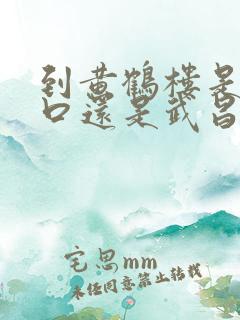 到黄鹤楼是
口还是武昌
宅思mm
未任同意禁止转载